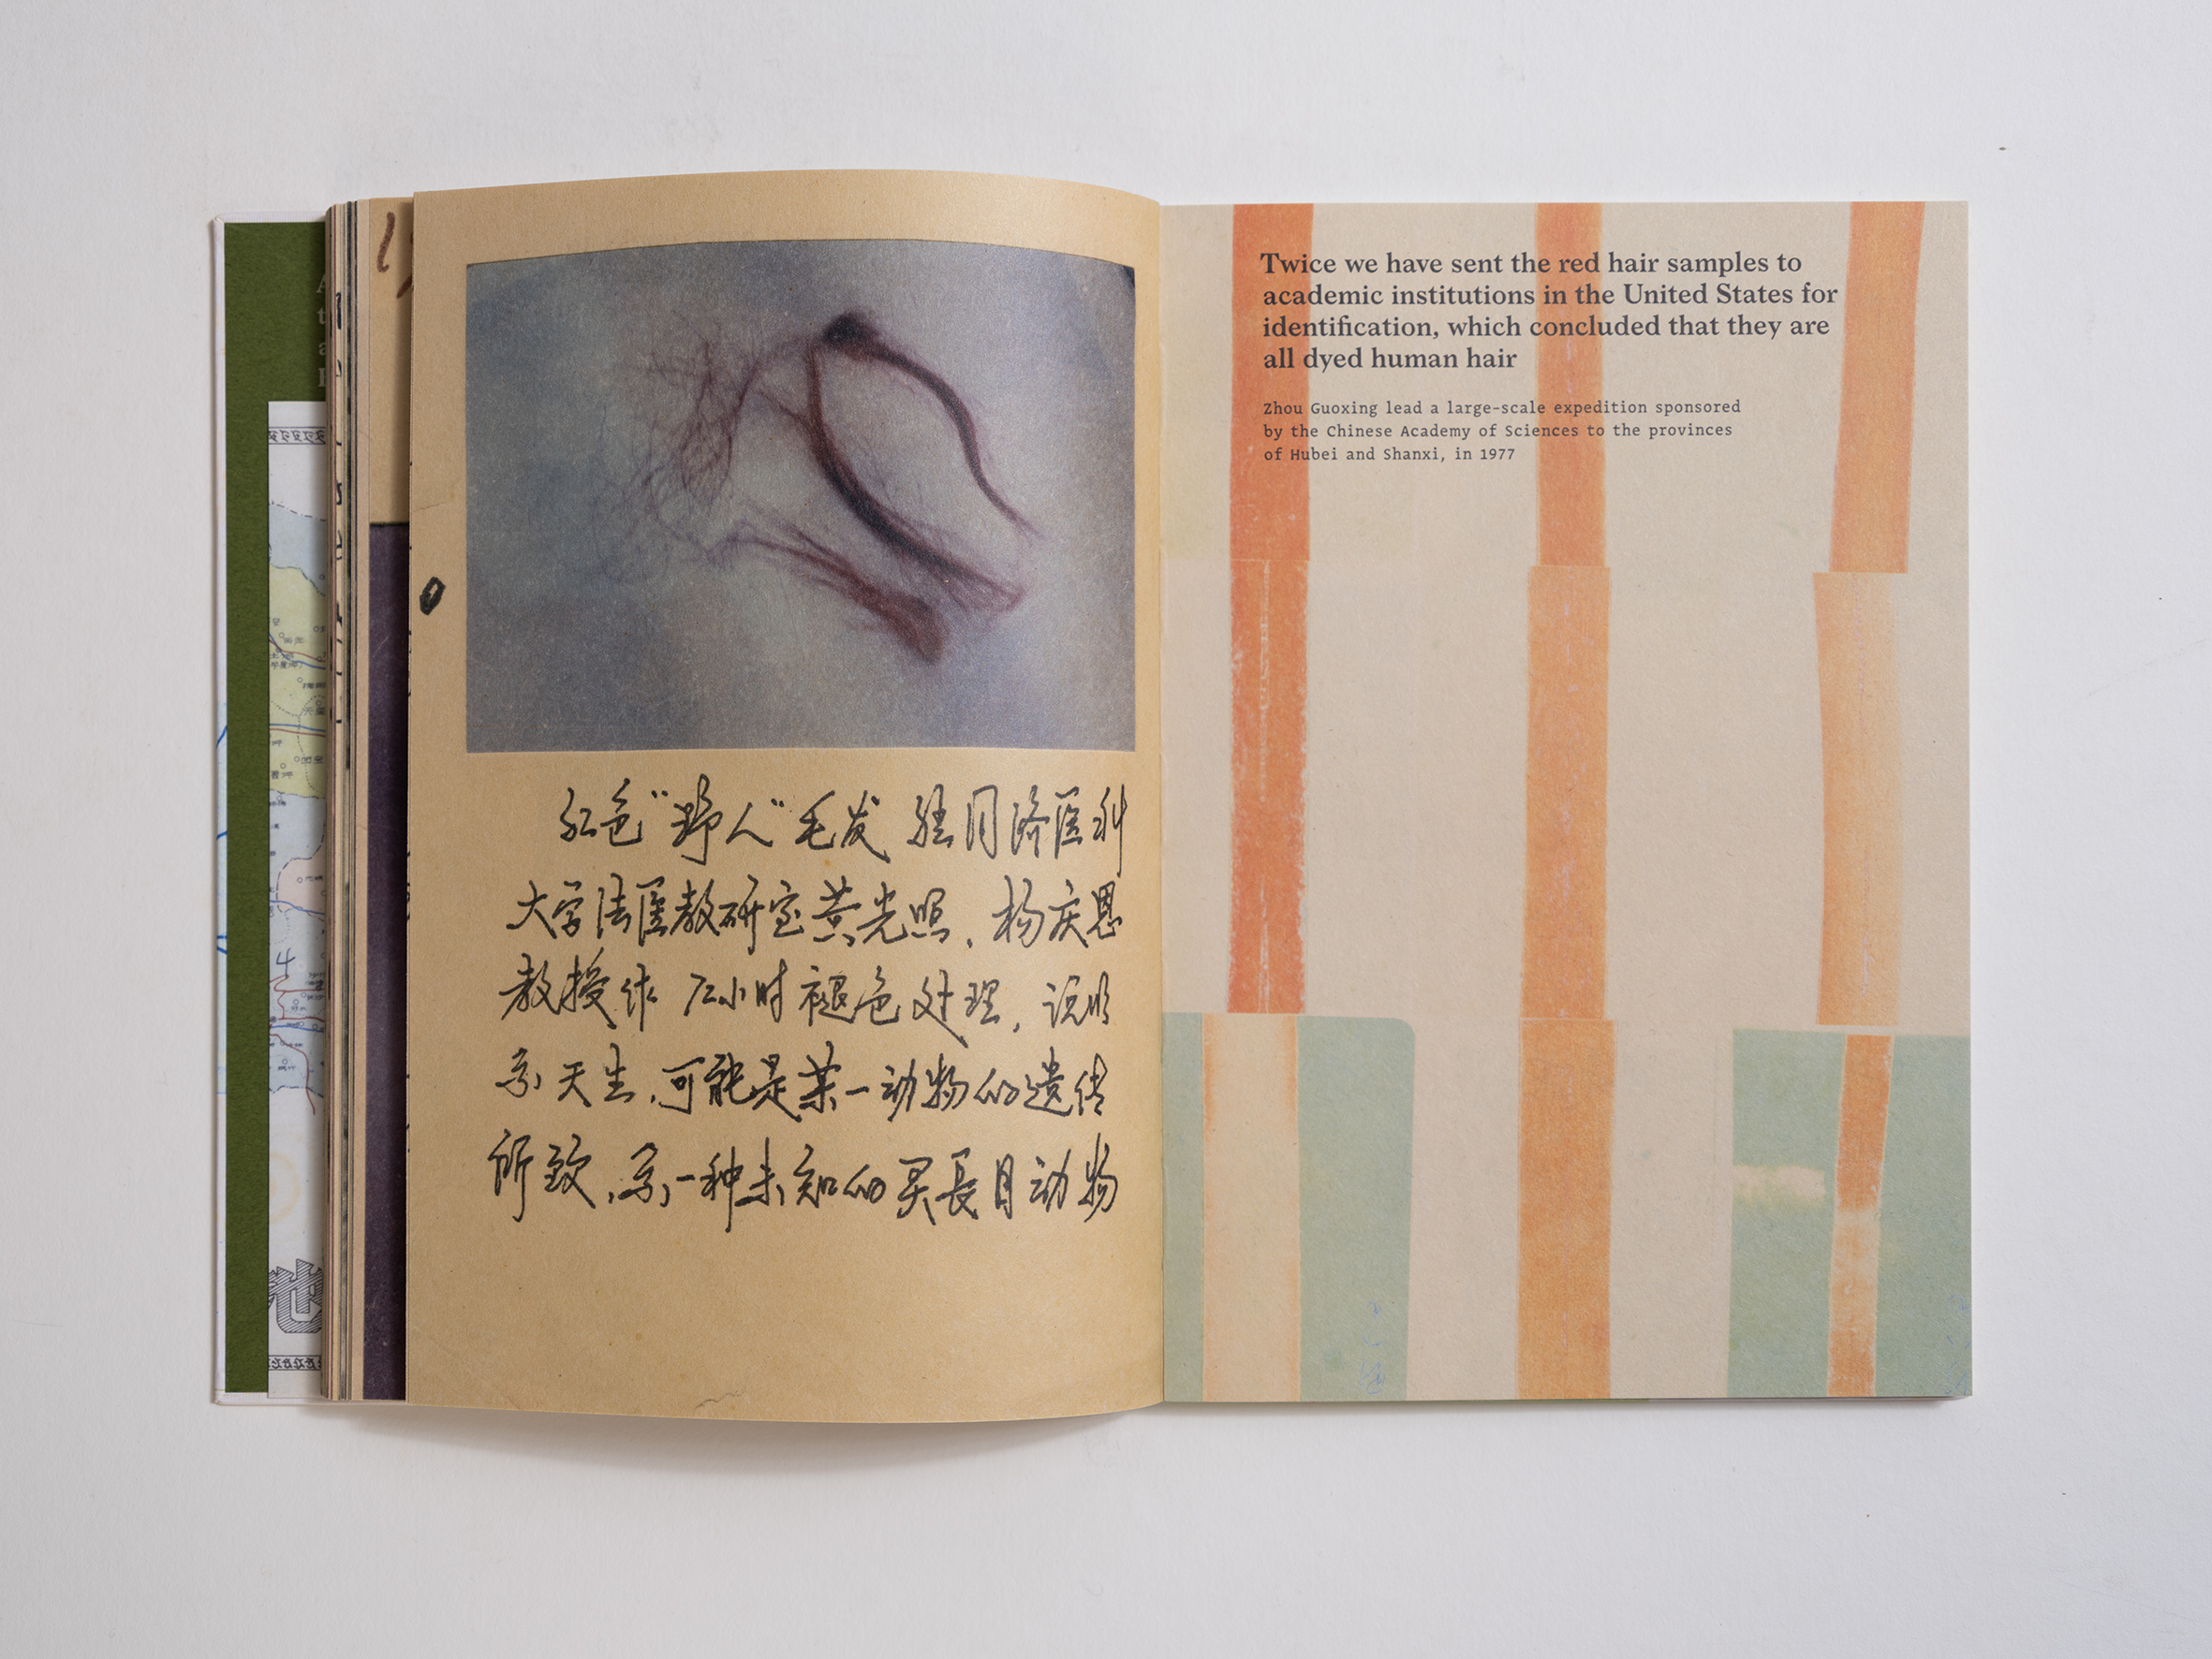 红色“野人”毛发 经同济医科
大学法医教研室黄光照、杨庆恩
教授作 72小时褪色处理, 说明
系天生,可能是某一动物的遗传
所致,系一种未知的灵长目动物
Twice we have sent the red hair samples to
academic institutions in the United States for
identification, which concluded that they are
all dyed human hair
Zhou Guoxing lead a large-scale expedition sponsored
by the Chinese Academy of Sciences to the provinces
of Hubei and Shanxi, in 1977